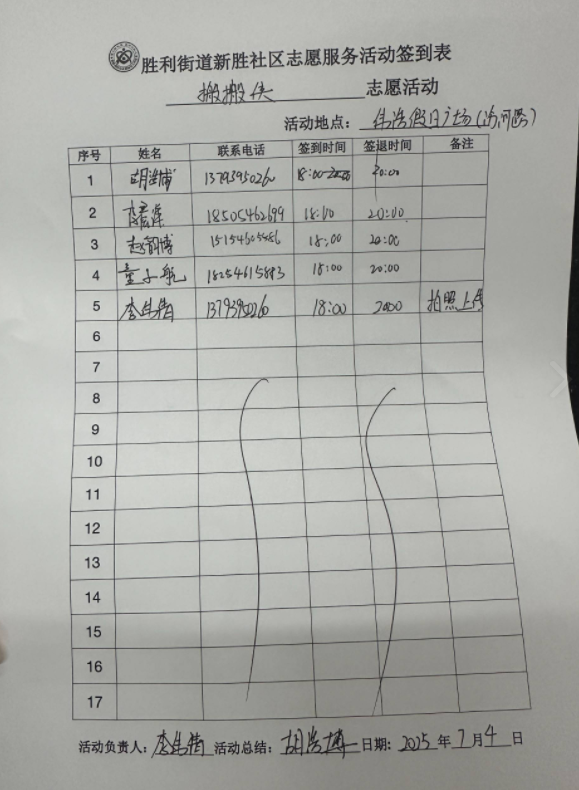 胜利街道新胜社区志愿服务活动签到表
搬搬侠 志愿活动
活动地点: 伟浩假日广场(济河路)
序号 姓名 联系电话 签到时间 签退时间 备注
1 胡浩博 18:00 20:00
2 18505462699 18:00 20:00
3 赵韵博 15154605486 18:00 20:00
4 童子航 18254615893 18:00 20:00
5 李伟倩 18:00 2000 拍照上传
6
7
8
9
10
11
12
13
14
15
16
17
活动负责人: 李伟倩 活动总结: 胡浩博 日期: 2025 年 7 月 4 日